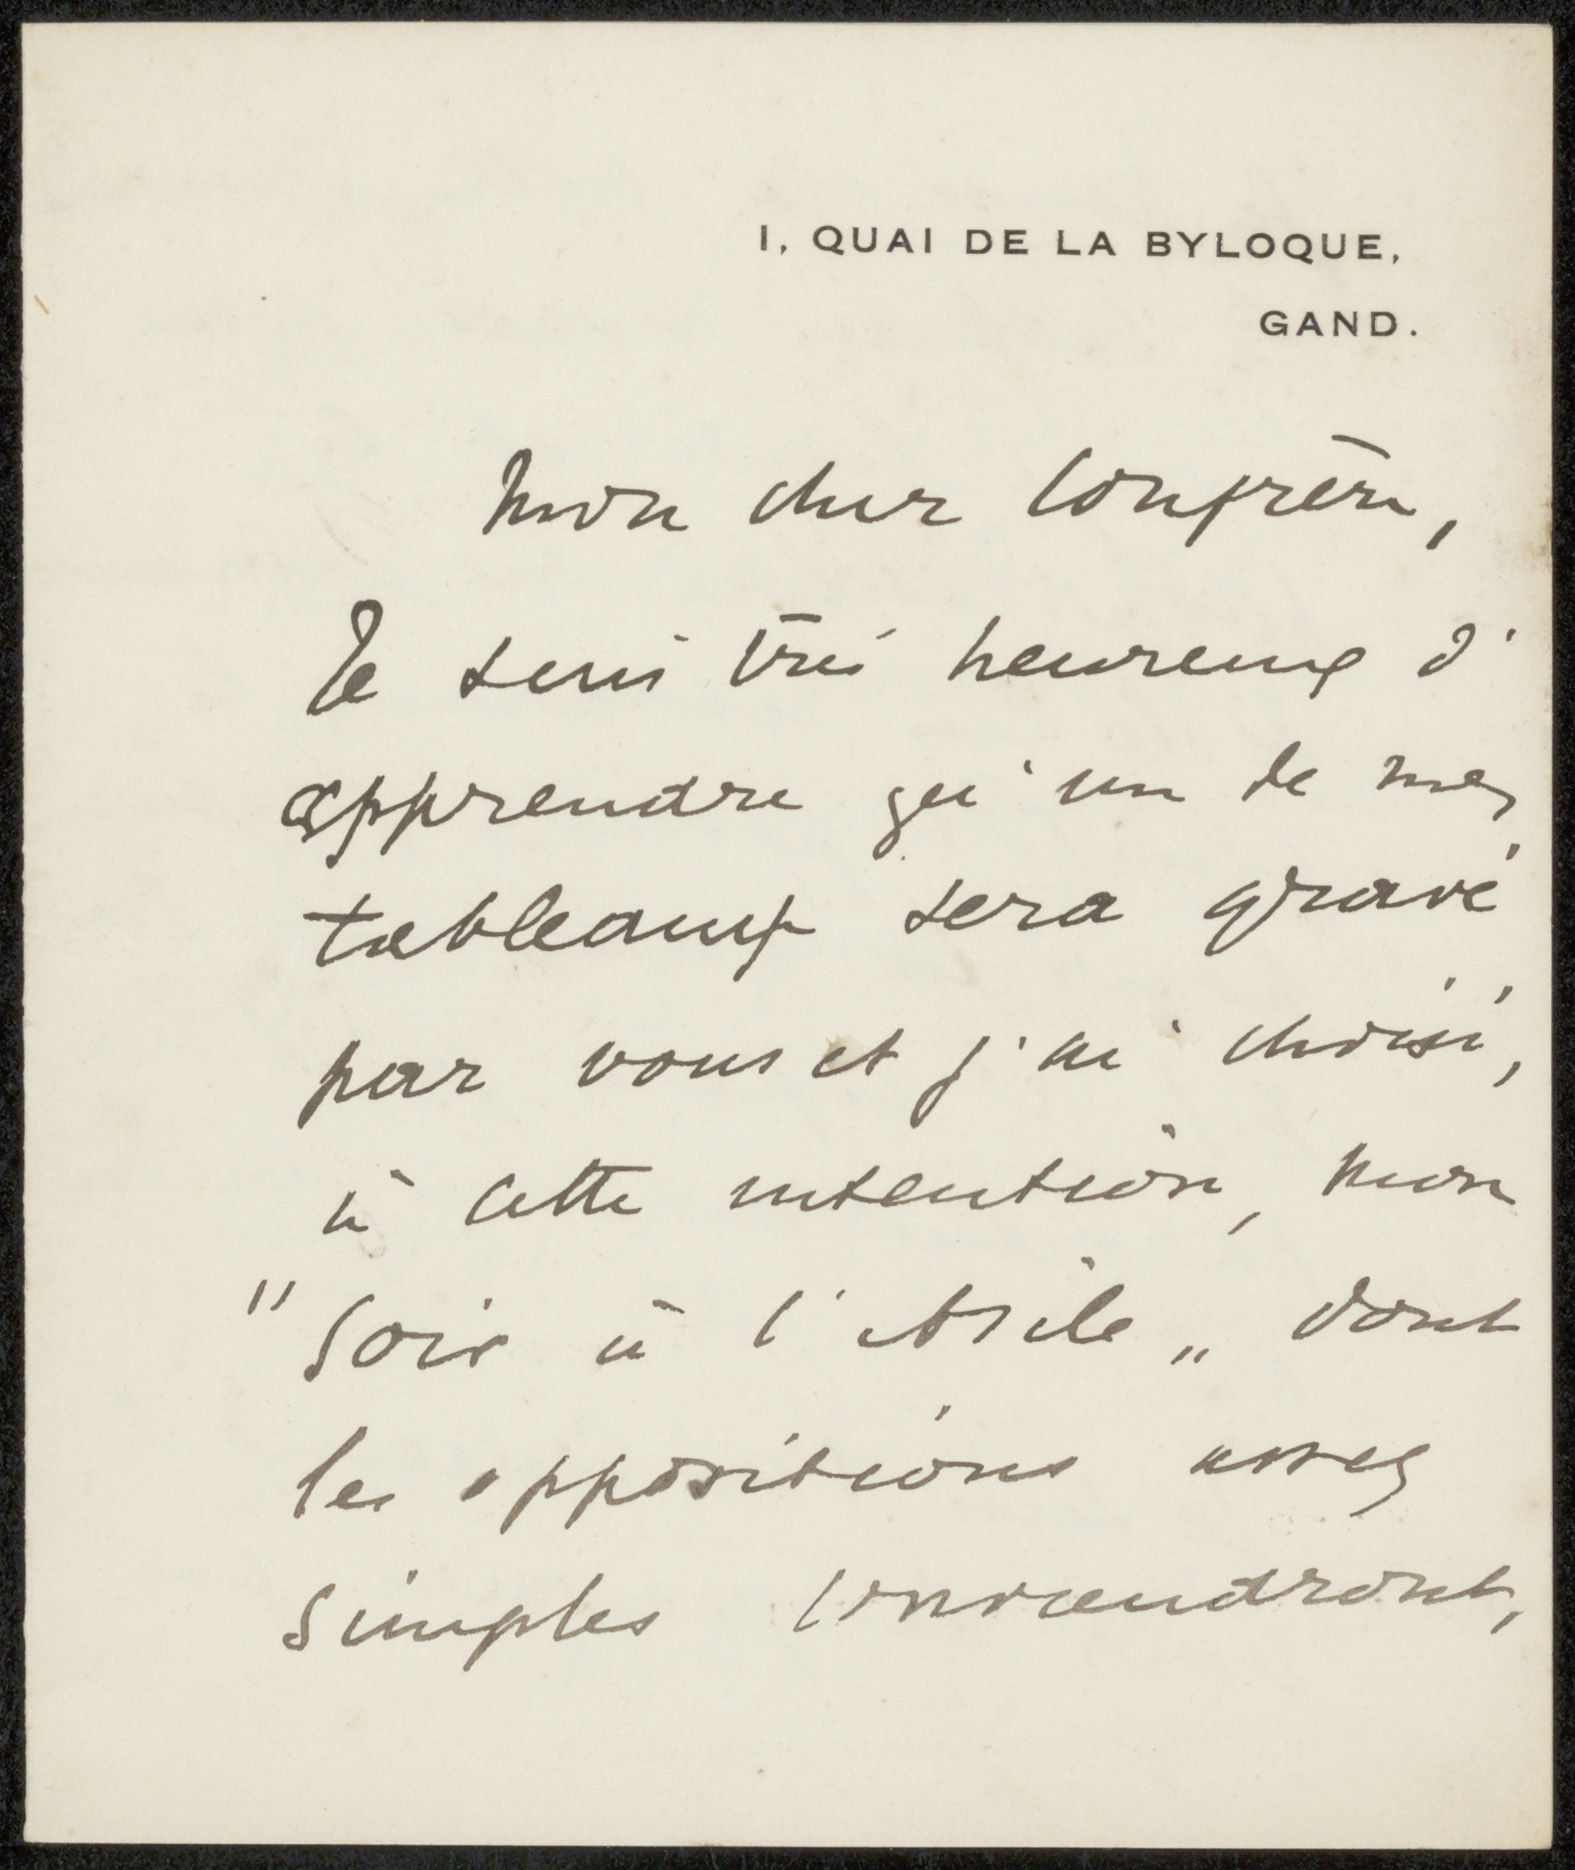 1, QUAI DE LA BYLOQUE,
GAND.
Mon cher Confrère,
Je suis très heureux d'
apprendre qu'un de mes
tableaux sera gravé
par vous et j'ai choisi,
à cette intention, mon
"Soir à l'Asile„ dont
les oppositions assez
simples conviendront,